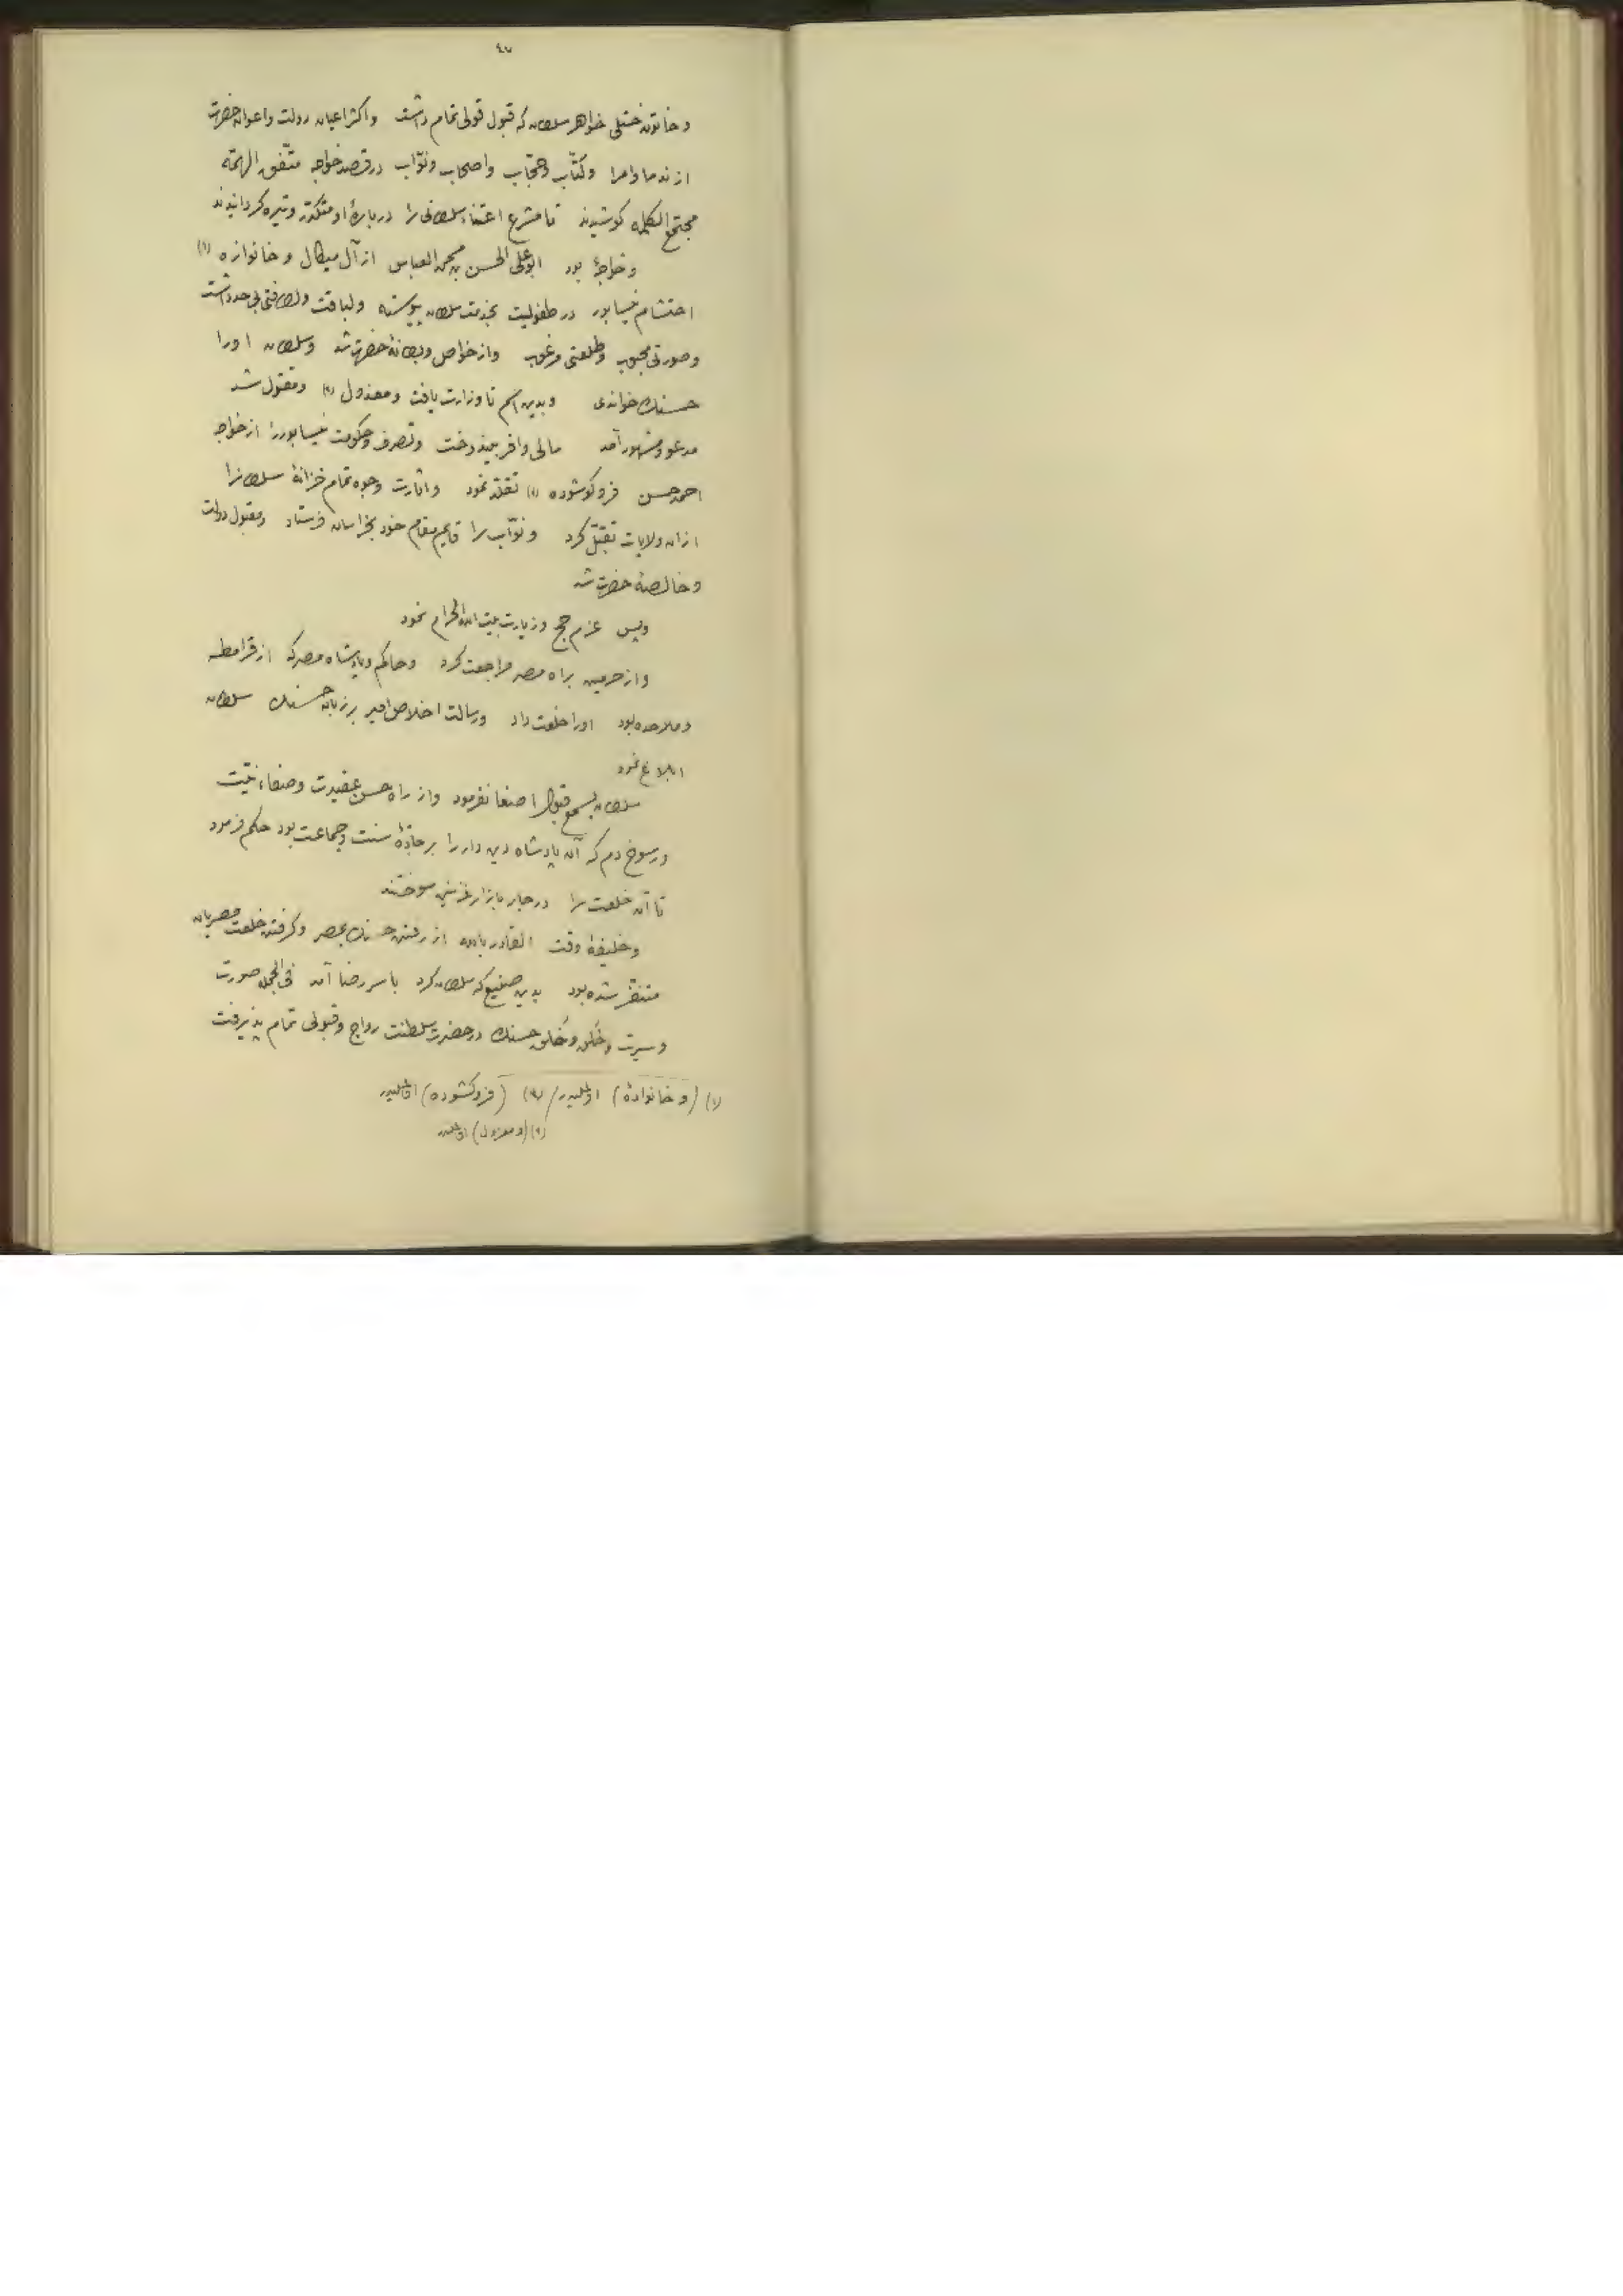 ٤٧
و خاتون ختلی خواهر سلطان که قبول قولی تمام داشت و اکثر اعیان دولت و اعوان حضرت
از ندما و امرا و کتّاب و حجّاب و اصحاب و نوّاب در قصد خواجه متّفق الهمّه
مجتمع الکلمه کوشیدند تا مشرع اعتناء سلطانی را در بارهٔ او متکدّر و تیره کردانیدند
و خواجهٔ بود ابوعلی الحسن بن محمد العباس از آل میکال و خانوازه (١)
احتشام نیسابور در طفولیت بخدمت سلطان پیوسته و لباقت و لطافتی بی حد داشت
و صورتی محبوب و طلعتی مرغوب و از خواص و بطانهٔ حضرت شد و سلطان او را
حسنک خواندی و بدین اسم تا وزارت یافت و معذول (٢) و مقتول شد
مدعو و مشهور آمد مالی وافر بیندوخت و تصرف و حکومت نیسابور را از خواجه
احمد حسن فروکوشوده تقلّد نمود و اثارت وجوه تمام خزانهٔ سلطان را
از ان ولایات تقبّل کرد و نوّاب را قایم مقام خود بخراسان فرستاد و مقبول دولت
و خالصهٔ حضرت شد
و پس عزم حج و زیارت بیت الله الحرام نمود
و از حرمین براه مصر مراجعت کرد و حاکم و پادشاه مصر که از قرامطه
و ملاحده بود او را خلعت داد و رسالت اخلاص امیر بر زبان حسنک سلطان
ابلاغ نمود
سلطان بسمع قبول اصغا نفرمود و از راه حسن عقیدت و صفاء نیّت
و رسوخ دم که آن پادشاه دین دار را بر جادّهٔ سنت و جماعت بود حکم فرمود
تا آن خلعت را در چار بازار غزنین سوختند
و خلیفهٔ وقت القادر بالله از رفتن حسنک بمصر و کرفتن خلعت مصریان
متنفّر شده بود بدین صنیع که سلطان کرد با سر رضا آمد فی الجمله صورت
و سیرت و خَلق و خُلق حسنک در حضرت سلطنت رواج و قبولی تمام پذیرفت
(١) (و خانوادهٔ) / (فروکشوده)
(٢) (و معزول)